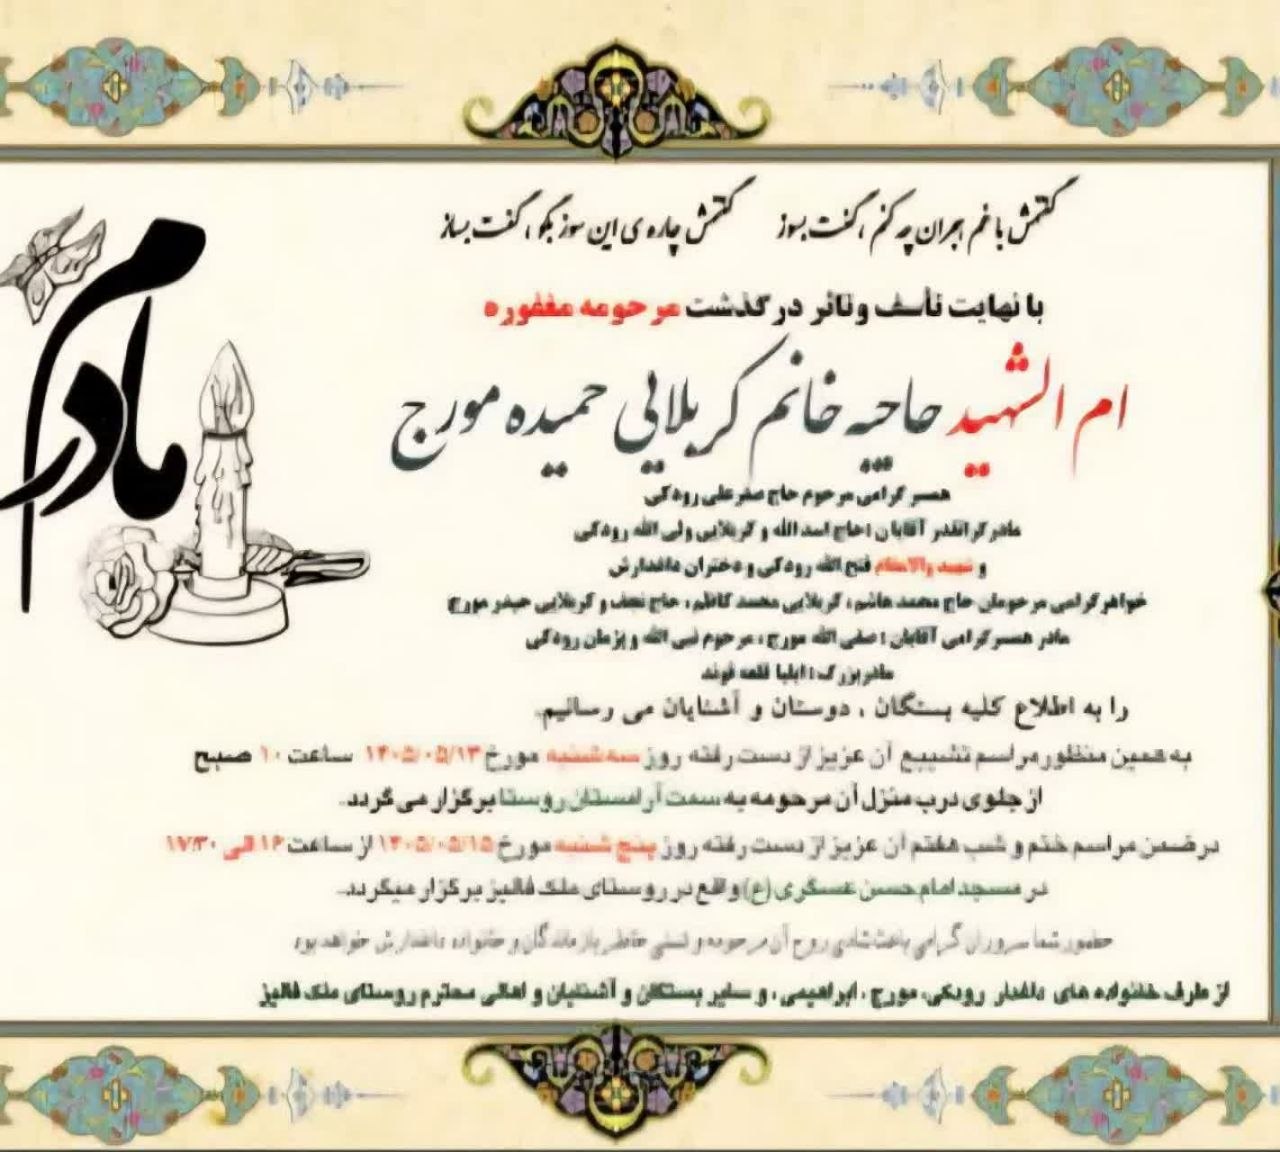 گفتمش با غم هجران چه کنم ، گفت بسوز گفتمش چاره ی این سوز بگو ، گفت بساز
با نهایت تأسف و تاثر درگذشت مرحومه مغفوره
ام الشهید حاجیه خانم کربلایی حمیده مورج
مادرم
همسر گرامی مرحوم حاج صفرعلی رودکی
مادر گرانقدر آقایان : حاج اسدالله و کربلایی ولی الله رودکی
و شهید والامقام فتح الله رودکی و دختران داغدارش
خواهر گرامی مرحومان حاج محمد هاشم ، کربلایی محمد کاظم ، حاج نجف و کربلایی حیدر مورج
مادر همسر گرامی آقایان : صفی الله مورج ، مرحوم نبی الله و پژمان رودکی
مادربزرگ : ایلیا قلعه قوند
را به اطلاع کلیه بستگان ، دوستان و آشنایان می رسانیم.
به همین منظور مراسم تشییع آن عزیز از دست رفته روز سه شنبه مورخ ۱۴۰۵/۰۵/۱۳ ساعت ۱۰ صبح
از جلوی درب منزل آن مرحومه به سمت آرامستان روستا برگزار می گردد.
در ضمن مراسم ختم و شب هفتم آن عزیز از دست رفته روز پنج شنبه مورخ ۱۴۰۵/۰۵/۱۵ از ساعت ۱۶ الی ۱۷:۳۰
در مسجد امام حسن عسگری (ع) واقع در روستای ملک فالیز برگزار میگردد.
حضور شما سروران گرامی باعث شادی روح آن مرحومه و تسلی خاطر بازماندگان و خانواده داغدارش خواهد بود
از طرف خانواده های داغدار رودکی، مورج ، ابراهیمی ، و سایر بستگان و آشنایان و اهالی محترم روستای ملک فالیز